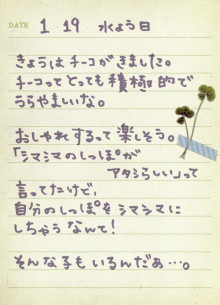 DATE 1 19 水よう日
きょうはチーコがきました。
チーコってとっても積極的で
うらやましいな。
おしゃれするって楽しそう。
「シマシマのしっぽが
アタシらしい」って
言ってたけど、
自分のしっぽをシマシマに
しちゃうなんて!
そんな子もいるんだぁ…。